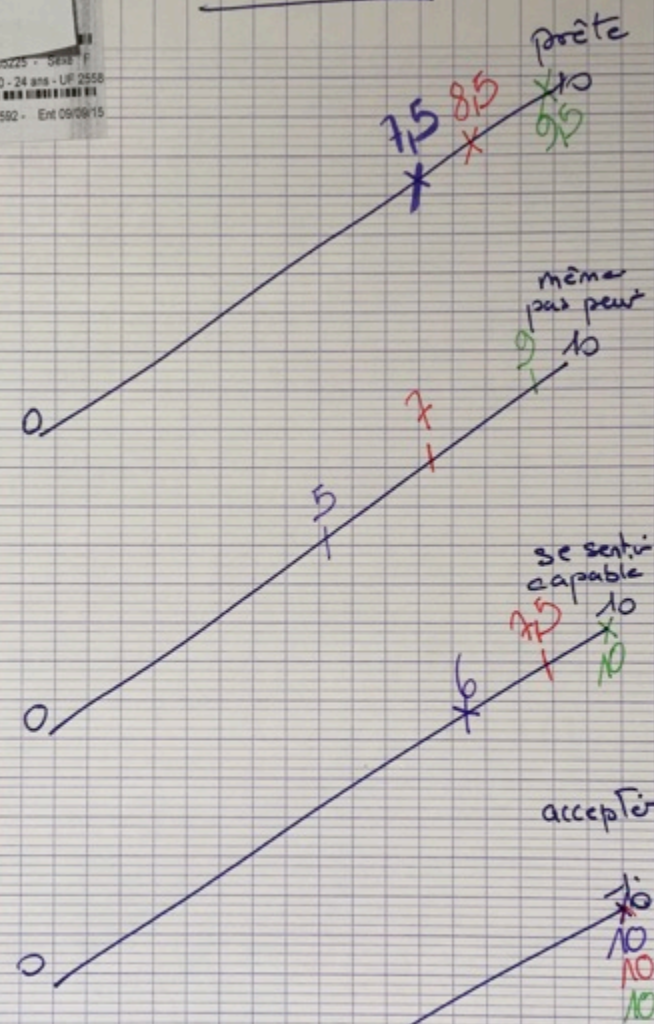 5225 - Sexe F
0 - 24 ans - UF 2558
592 - Ent 09/09/15
prête
10
9,5
8,5
7,5
0
même
pas peur
10
9
7
5
0
se sentir
capable
10
10
7,5
6
0
accepter
10
10
10
10